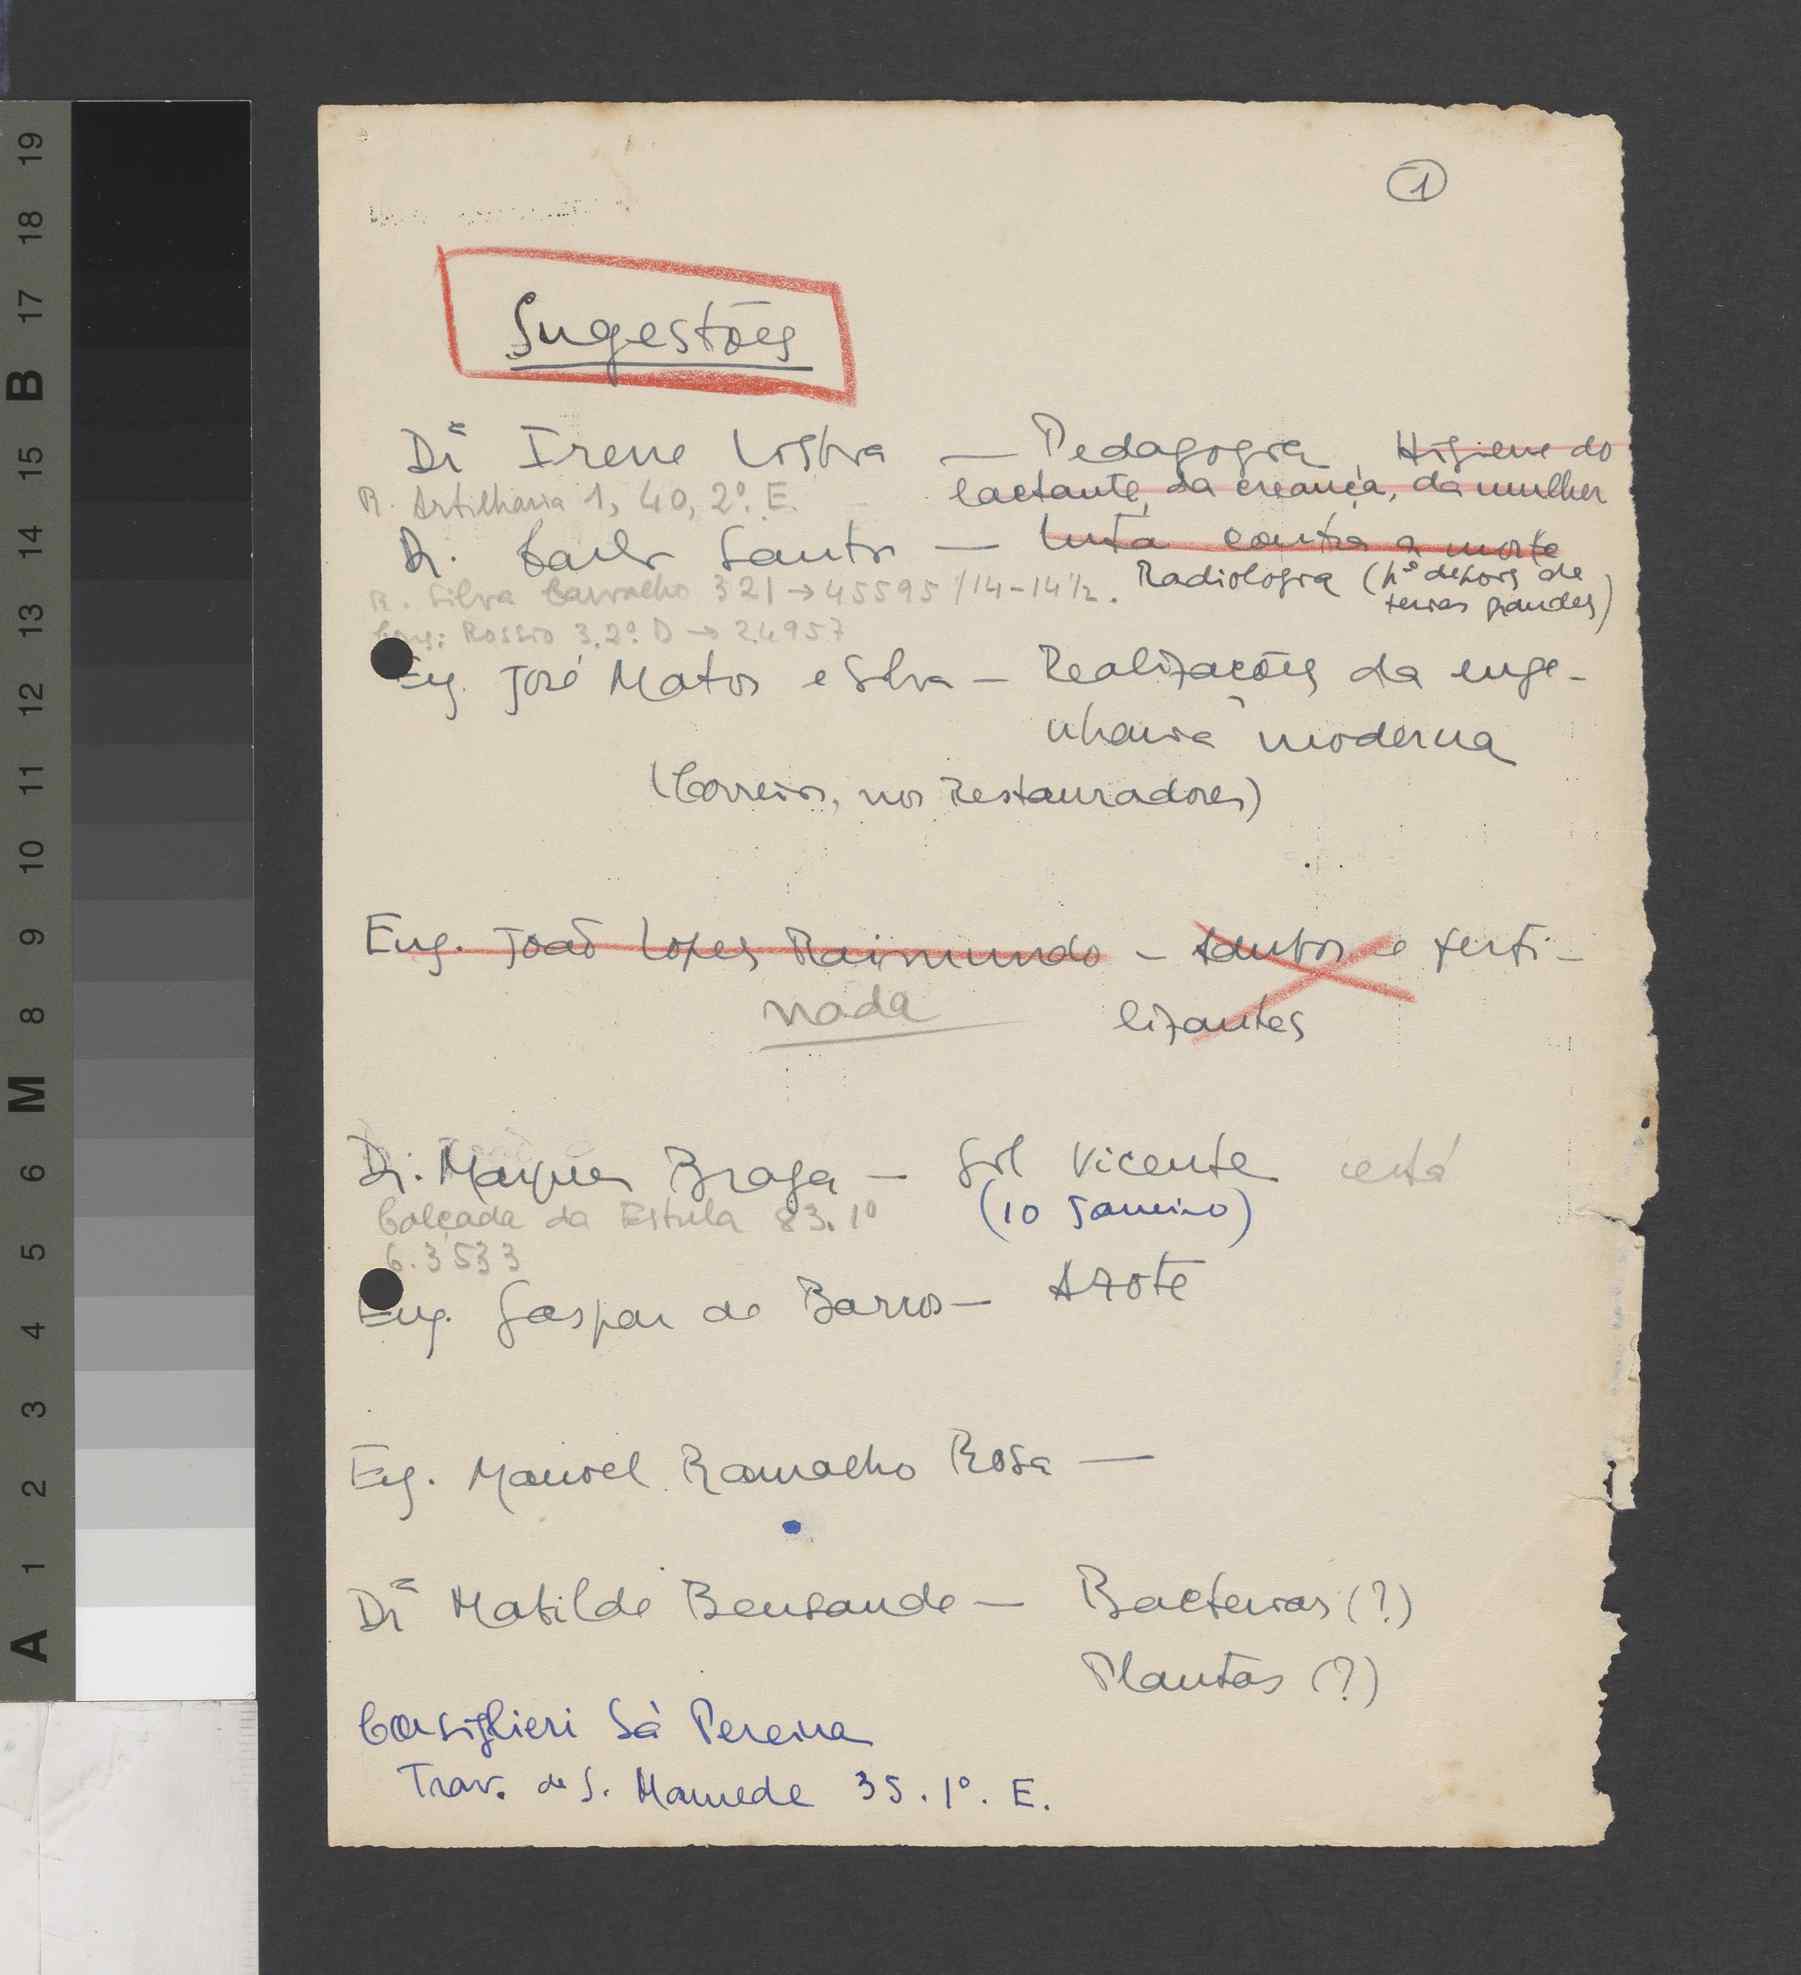 1
Sugestões
Drª Irene Lisboa — Pedagogia, Higiene do
lactante, da creança, da mulher
R. Artilharia 1, 40, 2º. E.
Dr. Carlos Santos — Luta contra a morte
Radiologia (pª depois de
ferias grandes)
R. Silva Carvalho 321 → 45595 / 14-14½.
Cons: Rossio 3.2º. D → 24957
Eng. José Matos e Silva — Realizações da enge-
nharia moderna
(Correios, nos Restauradores)
Eng. João Lopes Raimundo — Adubos e ferti-
lizantes
nada
Dr. Marques Braga — Gil Vicente
(10 Janeiro)
Calçada da Estrela 83. 1º
6.3533
Eng. Gaspar de Barros — Azote
Eng. Manuel Ramalho Rosa —
Drª Matilde Bensaude — Bacterias (?)
Plantas (?)
Consiglieri Sá Pereira
Trav. de S. Mamede 35. 1º. E.
19
18
17
B
15
14
13
12
11
10
9
8
M
6
5
4
3
2
1
A